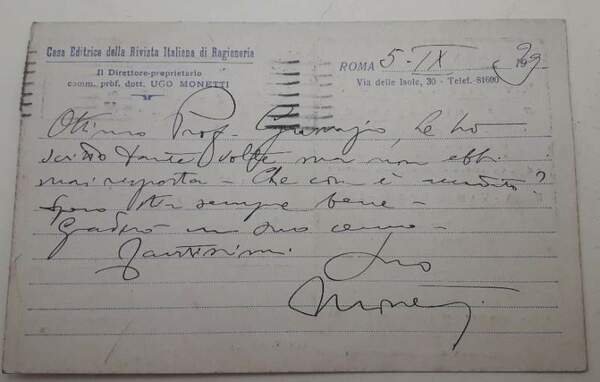 Casa Editrice della Rivista Italiana di Ragioneria
Il Direttore-proprietario
comm. prof. dott. UGO MONETTI
ROMA 5-IX 1939
Via delle Isole, 30 - Telef. 81690
Ottimo Prof. Le ho
scritto tante volte ma non ebbi
mai risposta - Che cosa è ?
Spero stia sempre bene -
Gradirò un suo cenno -
Tantissimi
Suo
Monetti